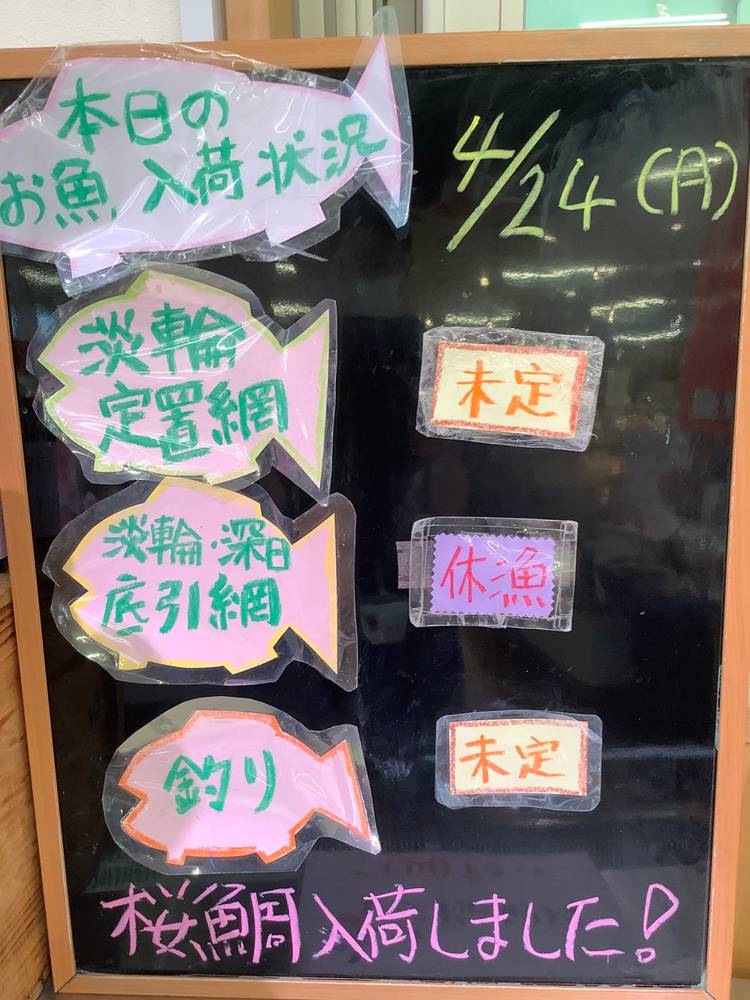 本日の
お魚 入荷状況
4/24(月)
淡輪
定置網
未定
淡輪・深日
底引網
休漁
釣り
未定
桜鯛入荷しました!